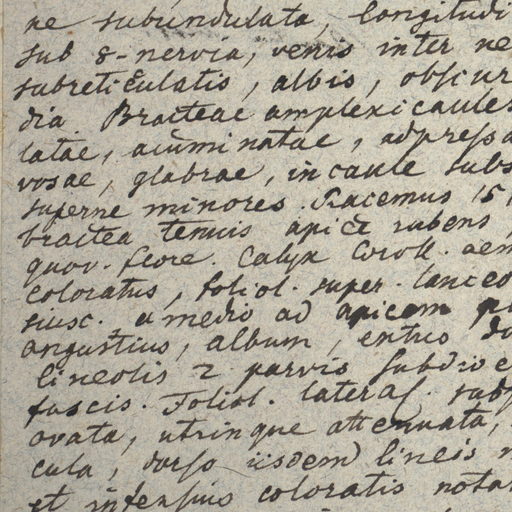 ne subundulata, longitudi
sub 8-nervia, venis inter ne
subreticulatis, albis, obscur
dia Bracteae amplexicaules
latae, acuminatae, adpressa
vosae, glabrae, in caule subs
superne minores. Racemus 15
bractea tenuis apice rubens,
quov. flore. Calyx Coroll. aem
coloratus, foliol. super. lanceo
siusc. a medio ad apicem
angustius, album, entus do
lineolis 2 parvis
fascis. Foliol. lateral. sub
ovata, utrinque attenuata,
cula, dorso iisdem lineis n
et intensius coloratis notat